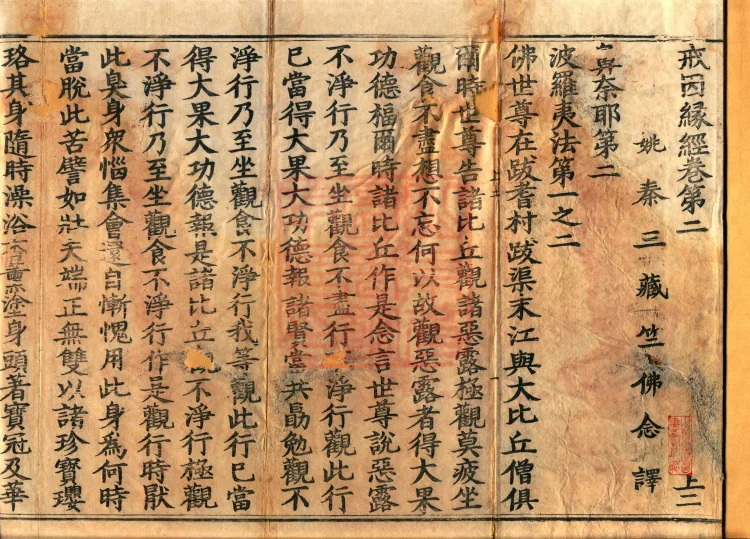 戒因緣經卷第二　上二
姚秦三藏竺佛念譯
鼻奈耶第二
波羅夷法第一之二
佛世尊在跋耆村跋渠末江與大比丘僧俱
爾時世尊告諸比丘觀諸惡露極觀莫疲坐
觀食不盡想不忘何以故觀惡露者得大果
功德福爾時諸比丘作是念言世尊說惡露
不淨行乃至坐觀食不盡行淨行觀此行
已當得大果大功德報諸賢當共勗勉觀不
淨行乃至坐觀食不淨行我等觀此行已當
得大果大功德報是諸比丘觀不淨行極觀
不淨行乃至坐觀食不淨行作是觀行時厭
此臭身眾惱集會還自慚愧用此身為何時
當脫此苦譬如壯夫端正無雙以諸珍寶瓔
珞其身隨時澡浴塗身頭著寶冠及華
上二